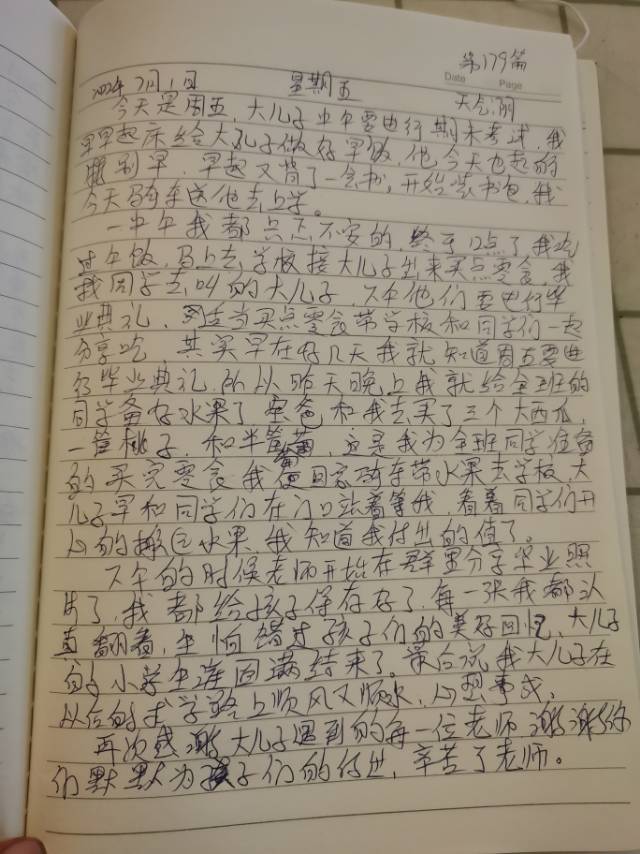 第179篇
Date Page
2022年7月1日 星期五 天气:阴
今天是周五,大儿子中午要进行期末考试,我
早早起床给大儿子做好早饭,他今天也起的
特别早,早起又背了一会书,开始装书包,我
今天骑车送他去上学。
一中午我都忐忑不安的,终于12点了我吃
过午饭,马上去学校接大儿子出来买点零食,我
找同学去叫的大儿子,下午他们要进行毕
业典礼,适当买点零食带学校和同学们一起
分享吃,其实早在好几天我就知道周五要进
行毕业典礼,所以昨天晚上我就给全班的
同学备好水果了,宝爸和我去买了三个大西瓜,
一筐桃子,和半筐葡萄,这是我为全班同学准备
的买完零食我便回家骑车带水果去学校,大
儿子早和同学们在门口站着等我,看着同学们开
心的搬运水果,我知道我付出的值了。
下午的时候老师开始在群里分享毕业照
片了,我都给孩子保存好了,每一张我都认
真翻看,生怕错过孩子们的美好回忆,大儿子
的小学生涯圆满结束了。最后说我大儿子在
以后的求学路上顺风又顺水,心想事成,
再次感谢大儿子遇到的每一位老师谢谢你
们默默为孩子们的付出,辛苦了老师。